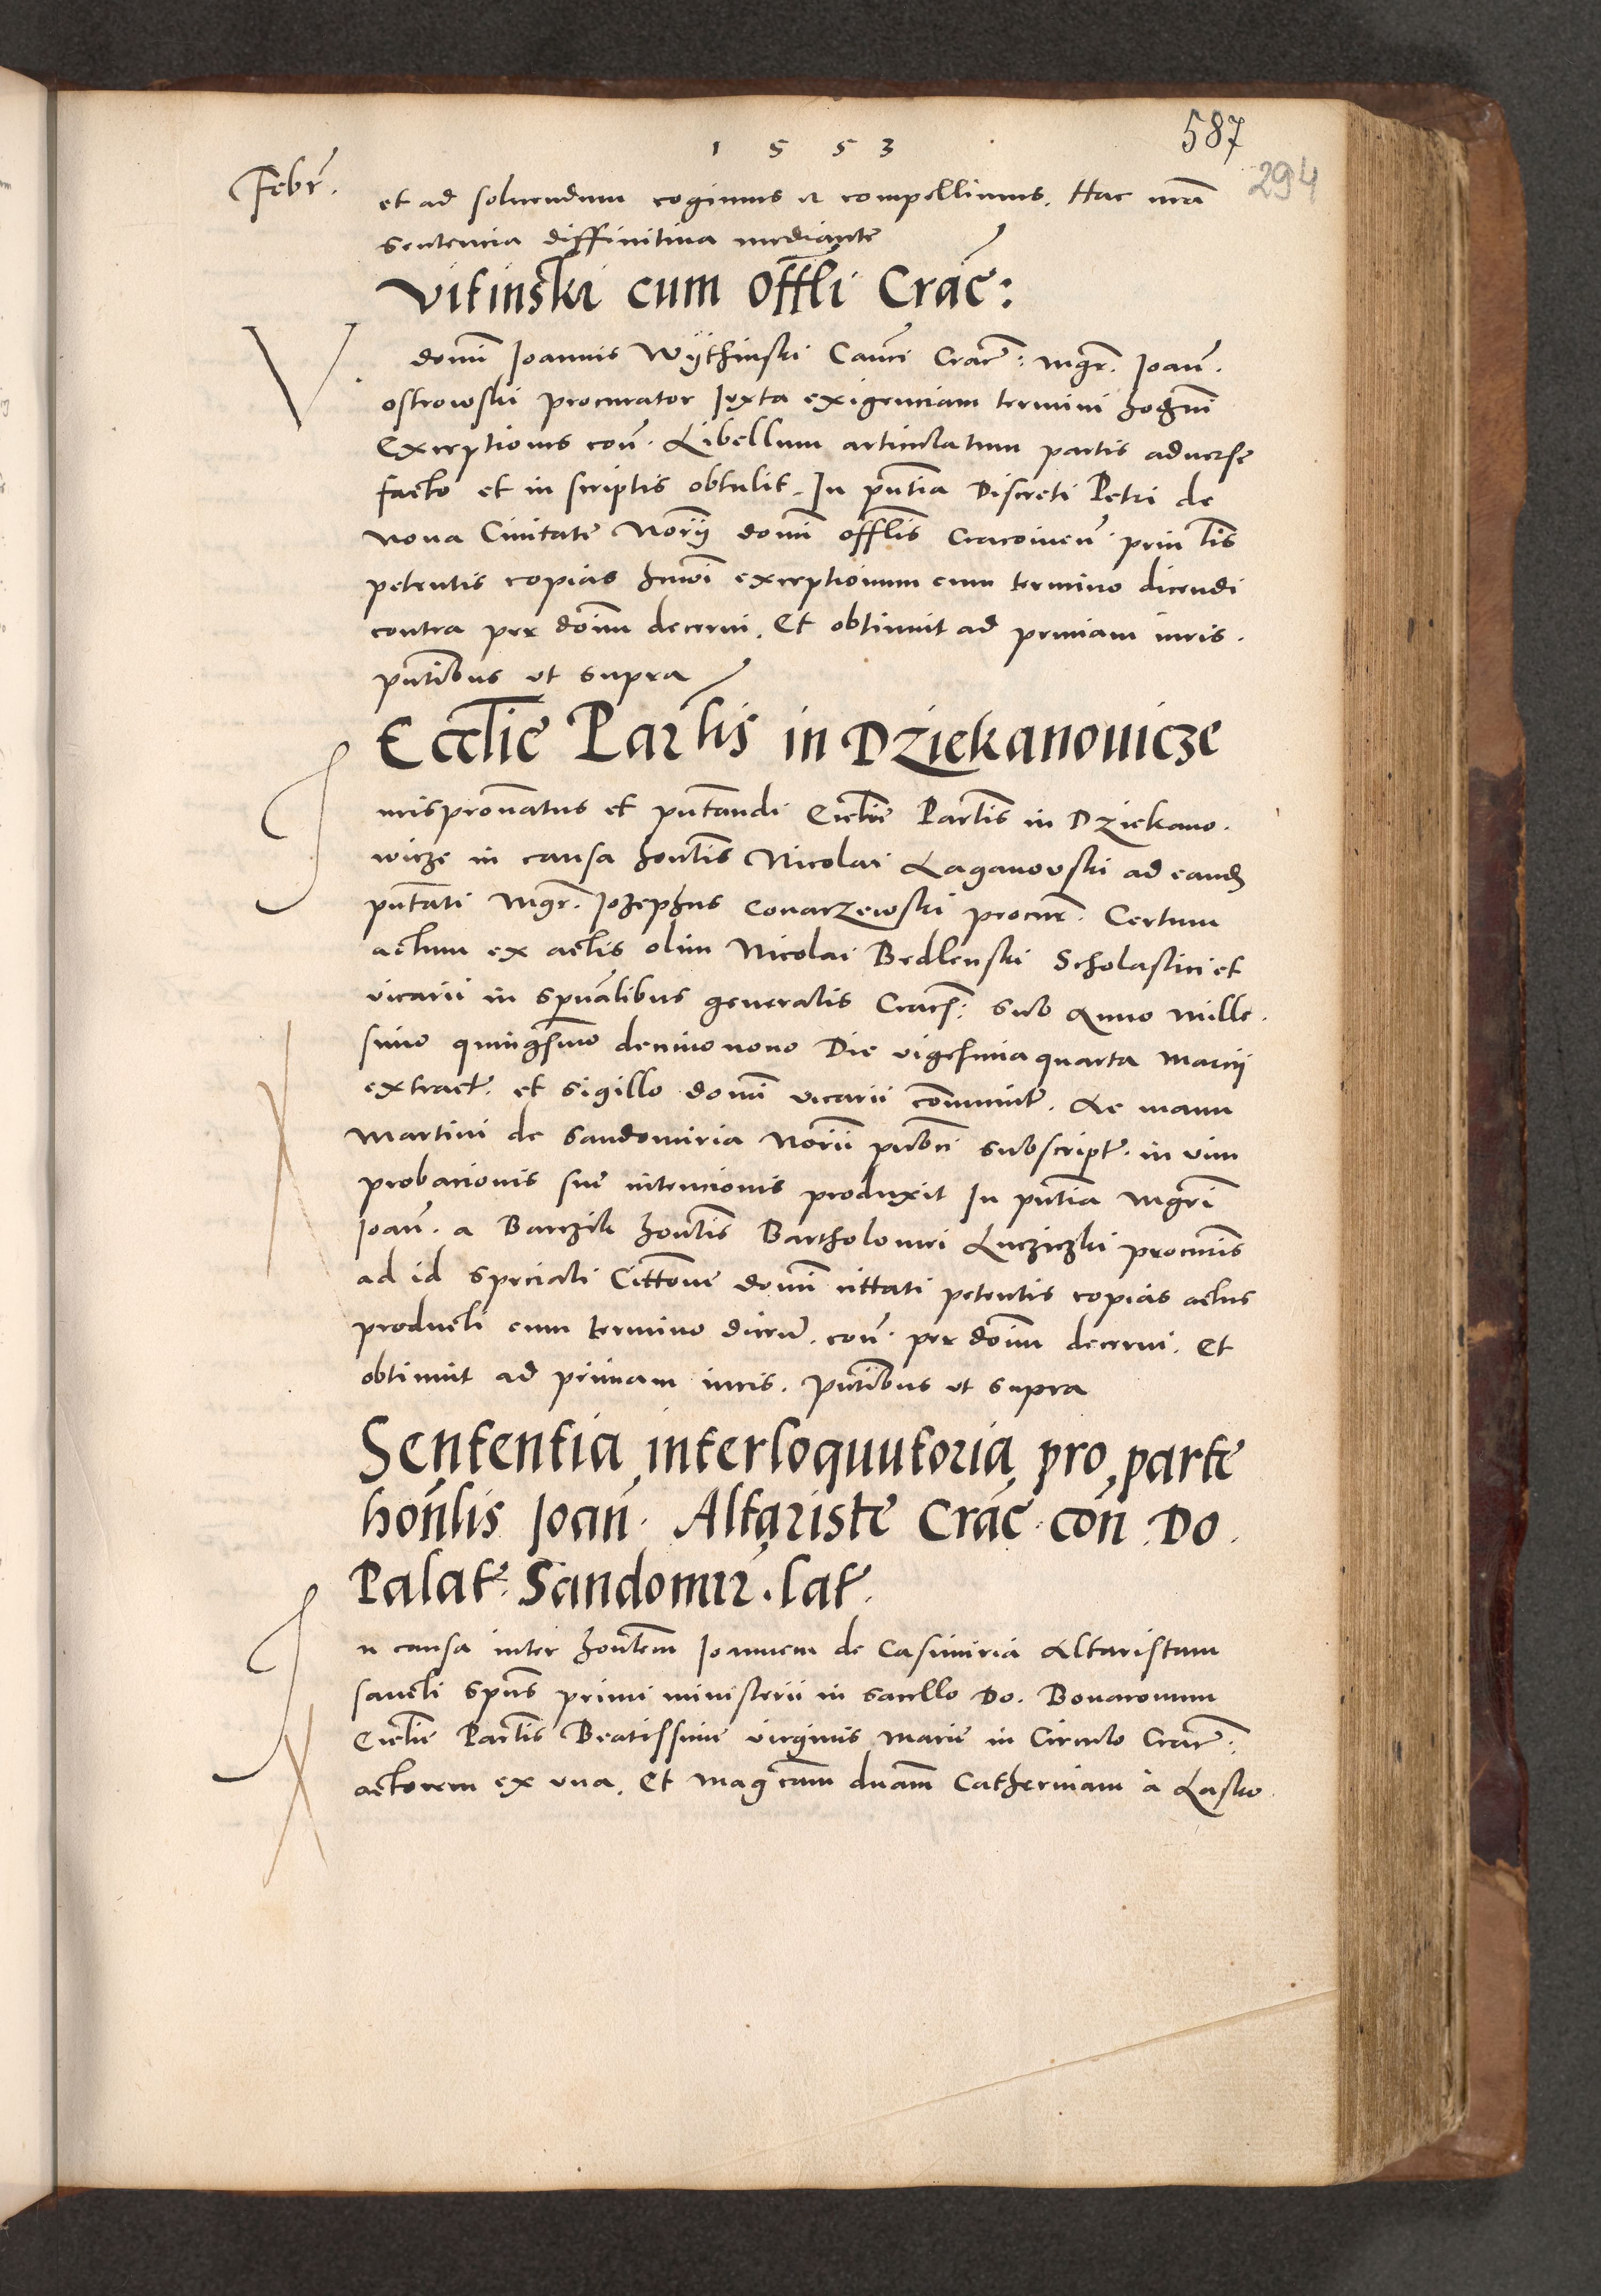 1 5 5 3
587
294
Febr.
et ad soluendum cogimus et compellimus. Hac nrā
sentencia diffinitiua mediante
Vitinski cum Offli Crac̄:
V. domi Joannis Wythinski Cauci Crac̄: Mgr. Joan̄.
Ostrowski procurator Juxta exigenciam termini hogni
Exceptiones con̄. Libellum articulatum partis aduerse
facto et in scriptis obtulit. In pn̄tia Discreti Petri de
Noua Ciuitate Norij domi offlis Cracouien̄ prin lis
petentis copias hmōi exceptionum cum termino dicendi
contra per donm decerni. Et obtinuit ad primam iuris.
pn̄tibus ut supra
Ecclie Parlis in Dziekanouicze
J urispron̄atus et pn̄tandi Ecclie Parlis in Dziekano.
wicze in causa honlis Nicolai Laganowski ad eand
pn̄tati Mgr. Jozephus Conarzewski procur. Certum
actum ex actis olim Nicolai Bedlenski Scholastici et
vicarii in spūalibus generalis Crac̄: sub Anno Mille.
simo quingsimo decimonono Die vigesimaquarta Marcij
extract. et sigillo domi vicarii com̄unit. Ac manu
Martini de Sandomiria Norii publici subscript. in vim
probacionis sue intencionis produxit In pn̄tia Mgri
Joan̄. a Banzik honlis Bartholomei Lucziczki procuris
ad id speciali Citt̄one domi cittati petentis copias actus
producti cum termino dicen̄. con̄. per donm decerni. Et
obtinuit ad primam iuris. Pn̄tibus ut supra
Sententia interloquutoria pro parte
hon̄lis Joan̄. Altariste Crac̄. con̄ Do.
Palat: Sandomir. lat.
J n causa inter honlem Joannem de Casimiria Altaristam
sancti Spūs primi ministerii in sacello Do. Bonaronum
Ecclie Parlis Beatissime virginis Marie in Circulo Crac̄:
actorem ex una. Et Mag cam dnam Catherinam à Lasko.